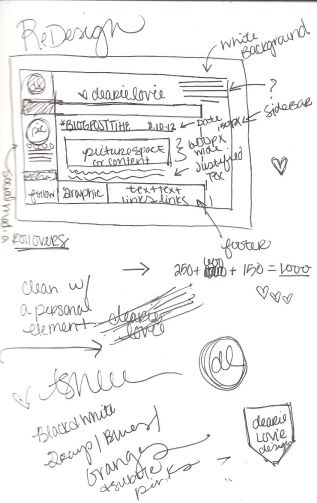 ReDesign
White
Background
dearie lovie
?
*BLOGPOSTTITLE 8.10.12
Date
SideBAR
150px
picturespace
or content
600px
wide
Justified
Tex
follow
Graphic
text text
links links
social media
ROLLOVERS
footer
250+ 600 + 150 = 1000
clean w/
a personal
element
dearie
lovie
dl
Black & White
Blues/
Orange
+ subtle
pinks
dearie
lovie
design